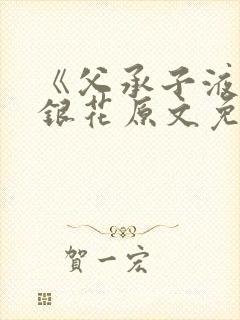 《父承子液
銀花原文免
賀一宏